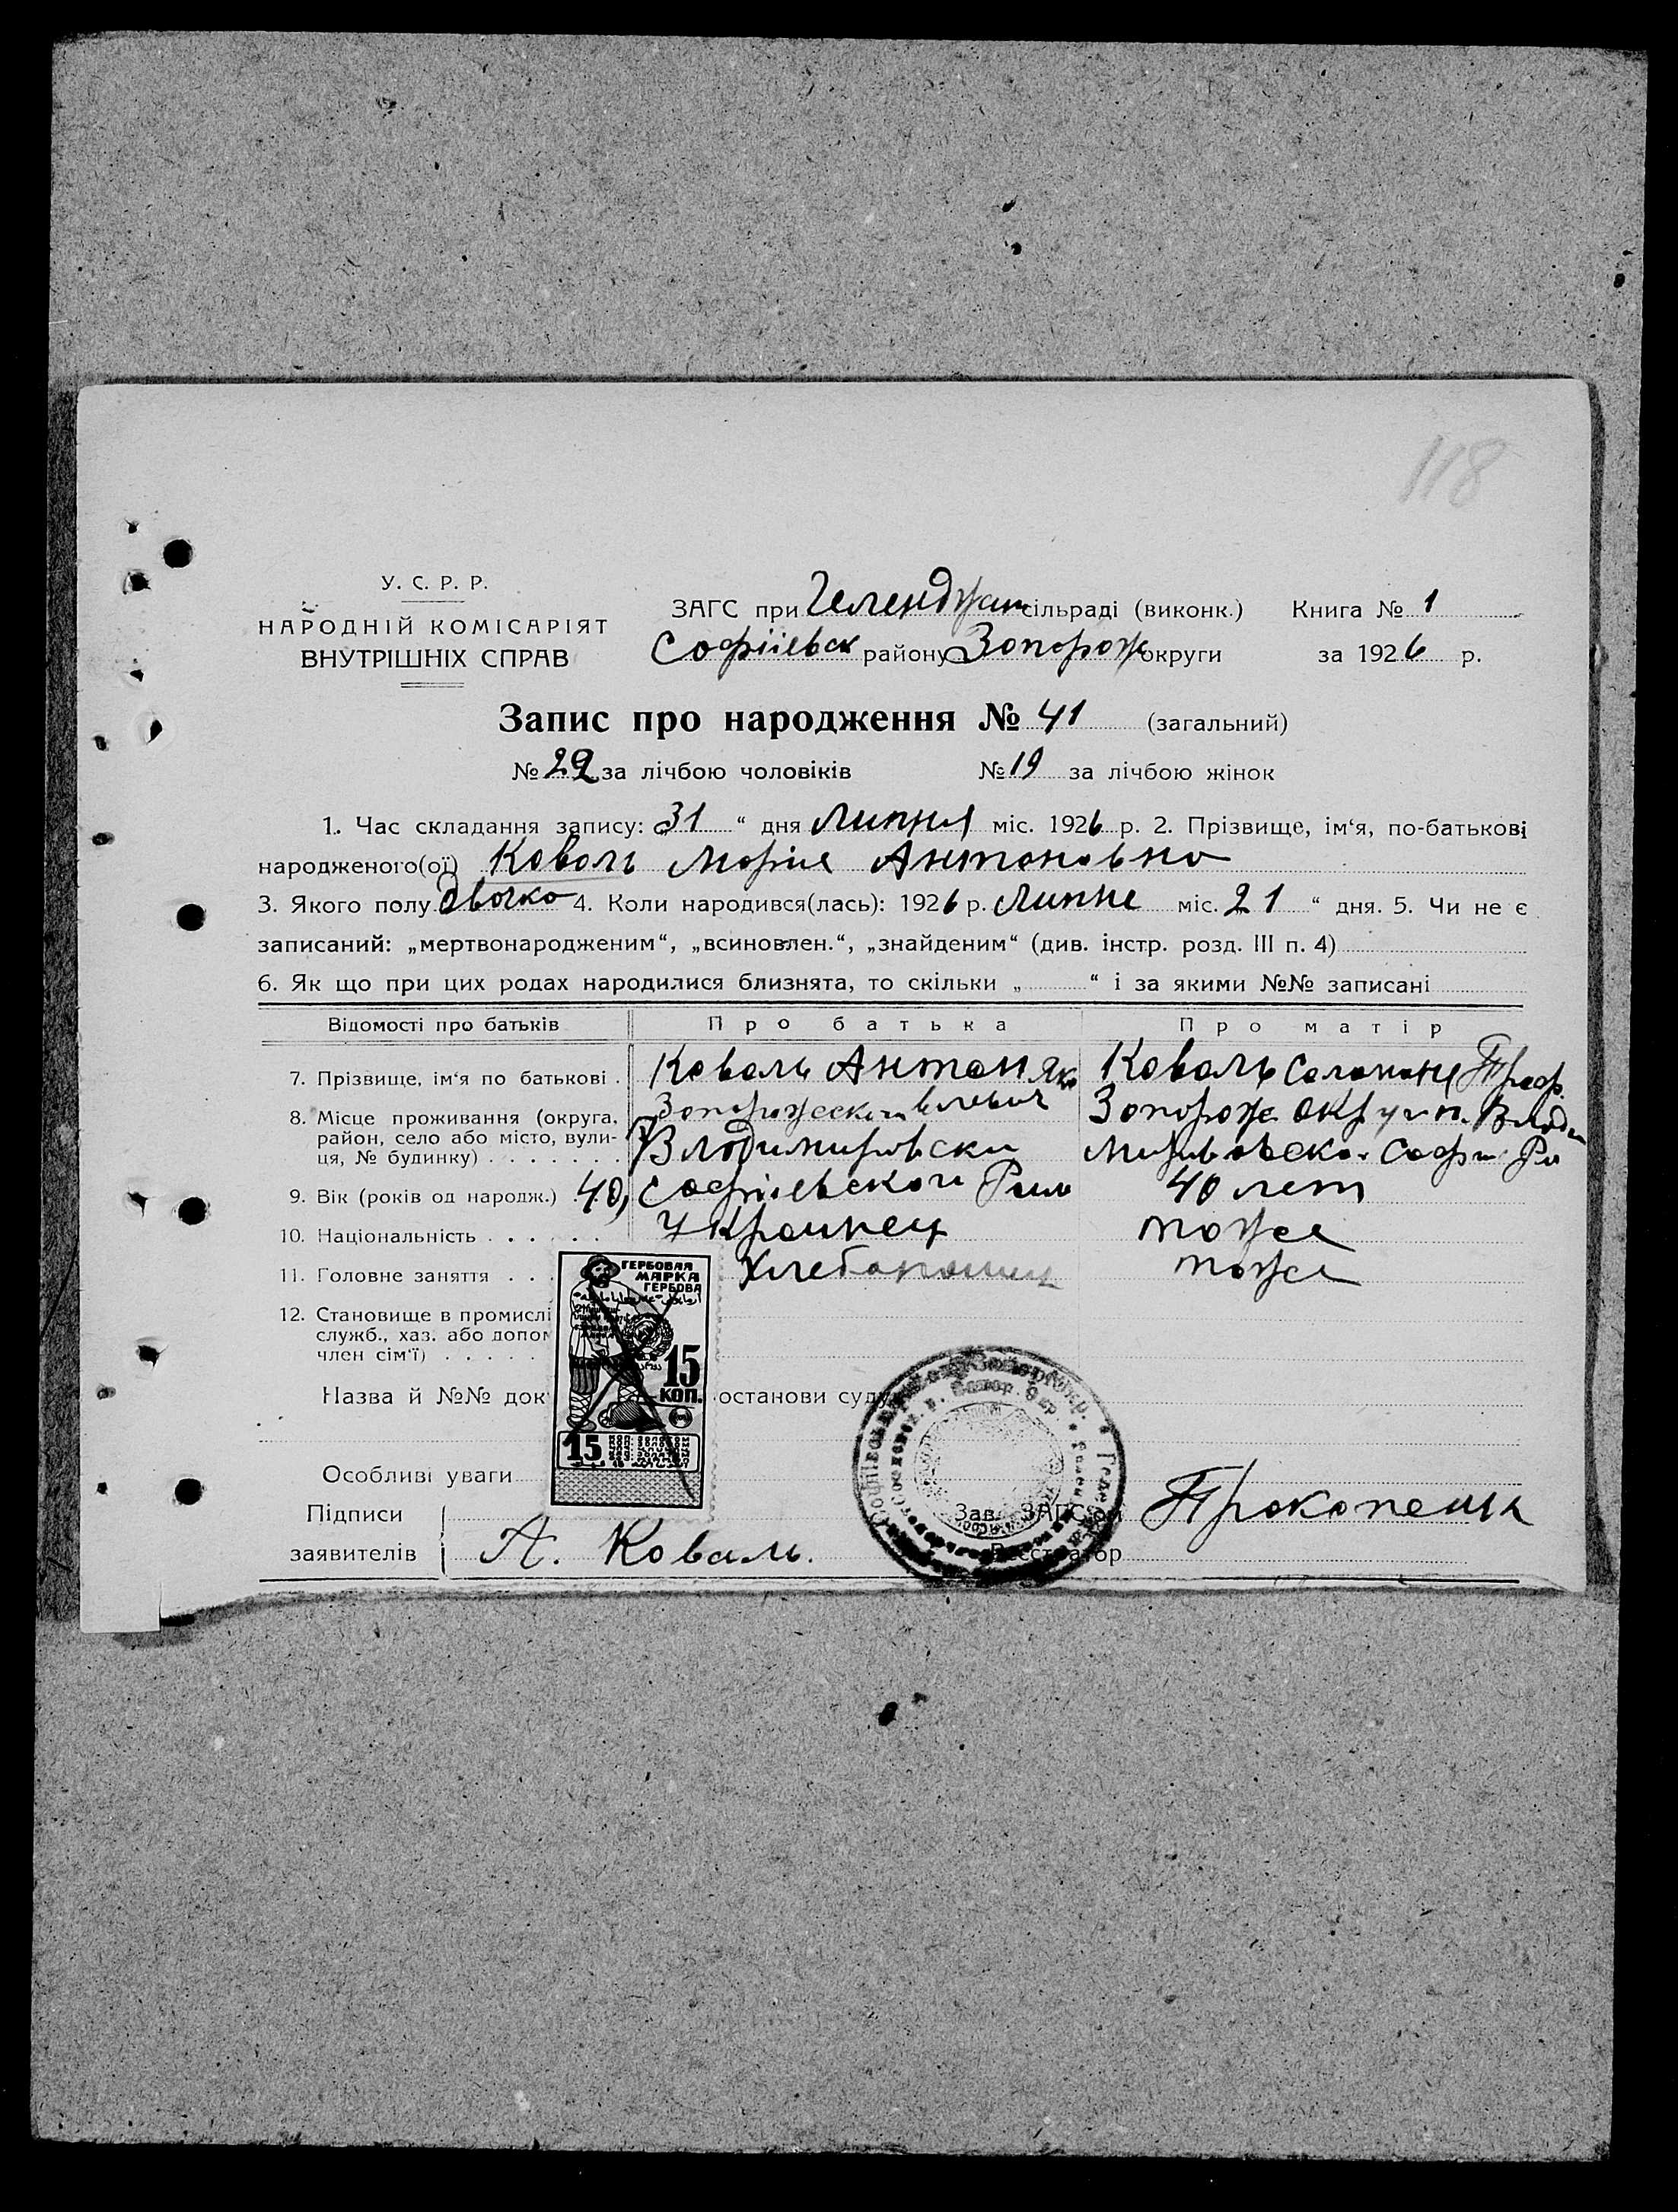 118
У. С. Р. Р.
НАРОДНІЙ КОМІСАРІЯТ
ВНУТРІШНІХ СПРАВ
ЗАГС при Геленджан сільраді (виконк.) Книга № 1
Софіівськ району Запорож округи за 1926 р.
Запис про народження № 41 (загальний)
№ 22 за лічбою чоловіків № 19 за лічбою жінок
1. Час складання запису: „31“ дня Липня міс. 1926 р. 2. Прізвище, ім‘я, по-батькові
народженого(ої) Коваль Марія Антоновна
3. Якого полу двочка 4. Коли народився(лась): 1926 р. Липне міс. 21“ дня. 5. Чи не є
записаний: „мертвонародженим“, „всиновлен.“, „знайденим“ (див. інстр. розд. III п. 4)
6. Як що при цих родах народилися близнята, то скільки „ “ і за якими №№ записані
Відомості про батьків Про батька Про матір
7. Прізвище, ім‘я по батькові . Коваль Антон Яковлевич Коваль Проф.
8. Місце проживання (округа, Запорож округи п. Влади
район, село або місто, вули- Владимировски
ця, № будинку) . . . . . . . Софи Ра
9. Вік (років од народж.) 40, Софіевскаги 40 лет
10. Національність . . . . . . Украинец тоже
11. Головне заняття . . . Хлебопашец тоже
12. Становище в промислі
служб., хаз. або допом
член сім‘ї) . . . . .
ГЕРБОВАЯ
МАРКА
ГЕРБОВА
15
КОП.
15
Назва й №№ док останови суду
Особливі уваги
Підписи Зав. ЗАГС‘ом Прокопенко
заявителів А. Коваль. Реєстратор